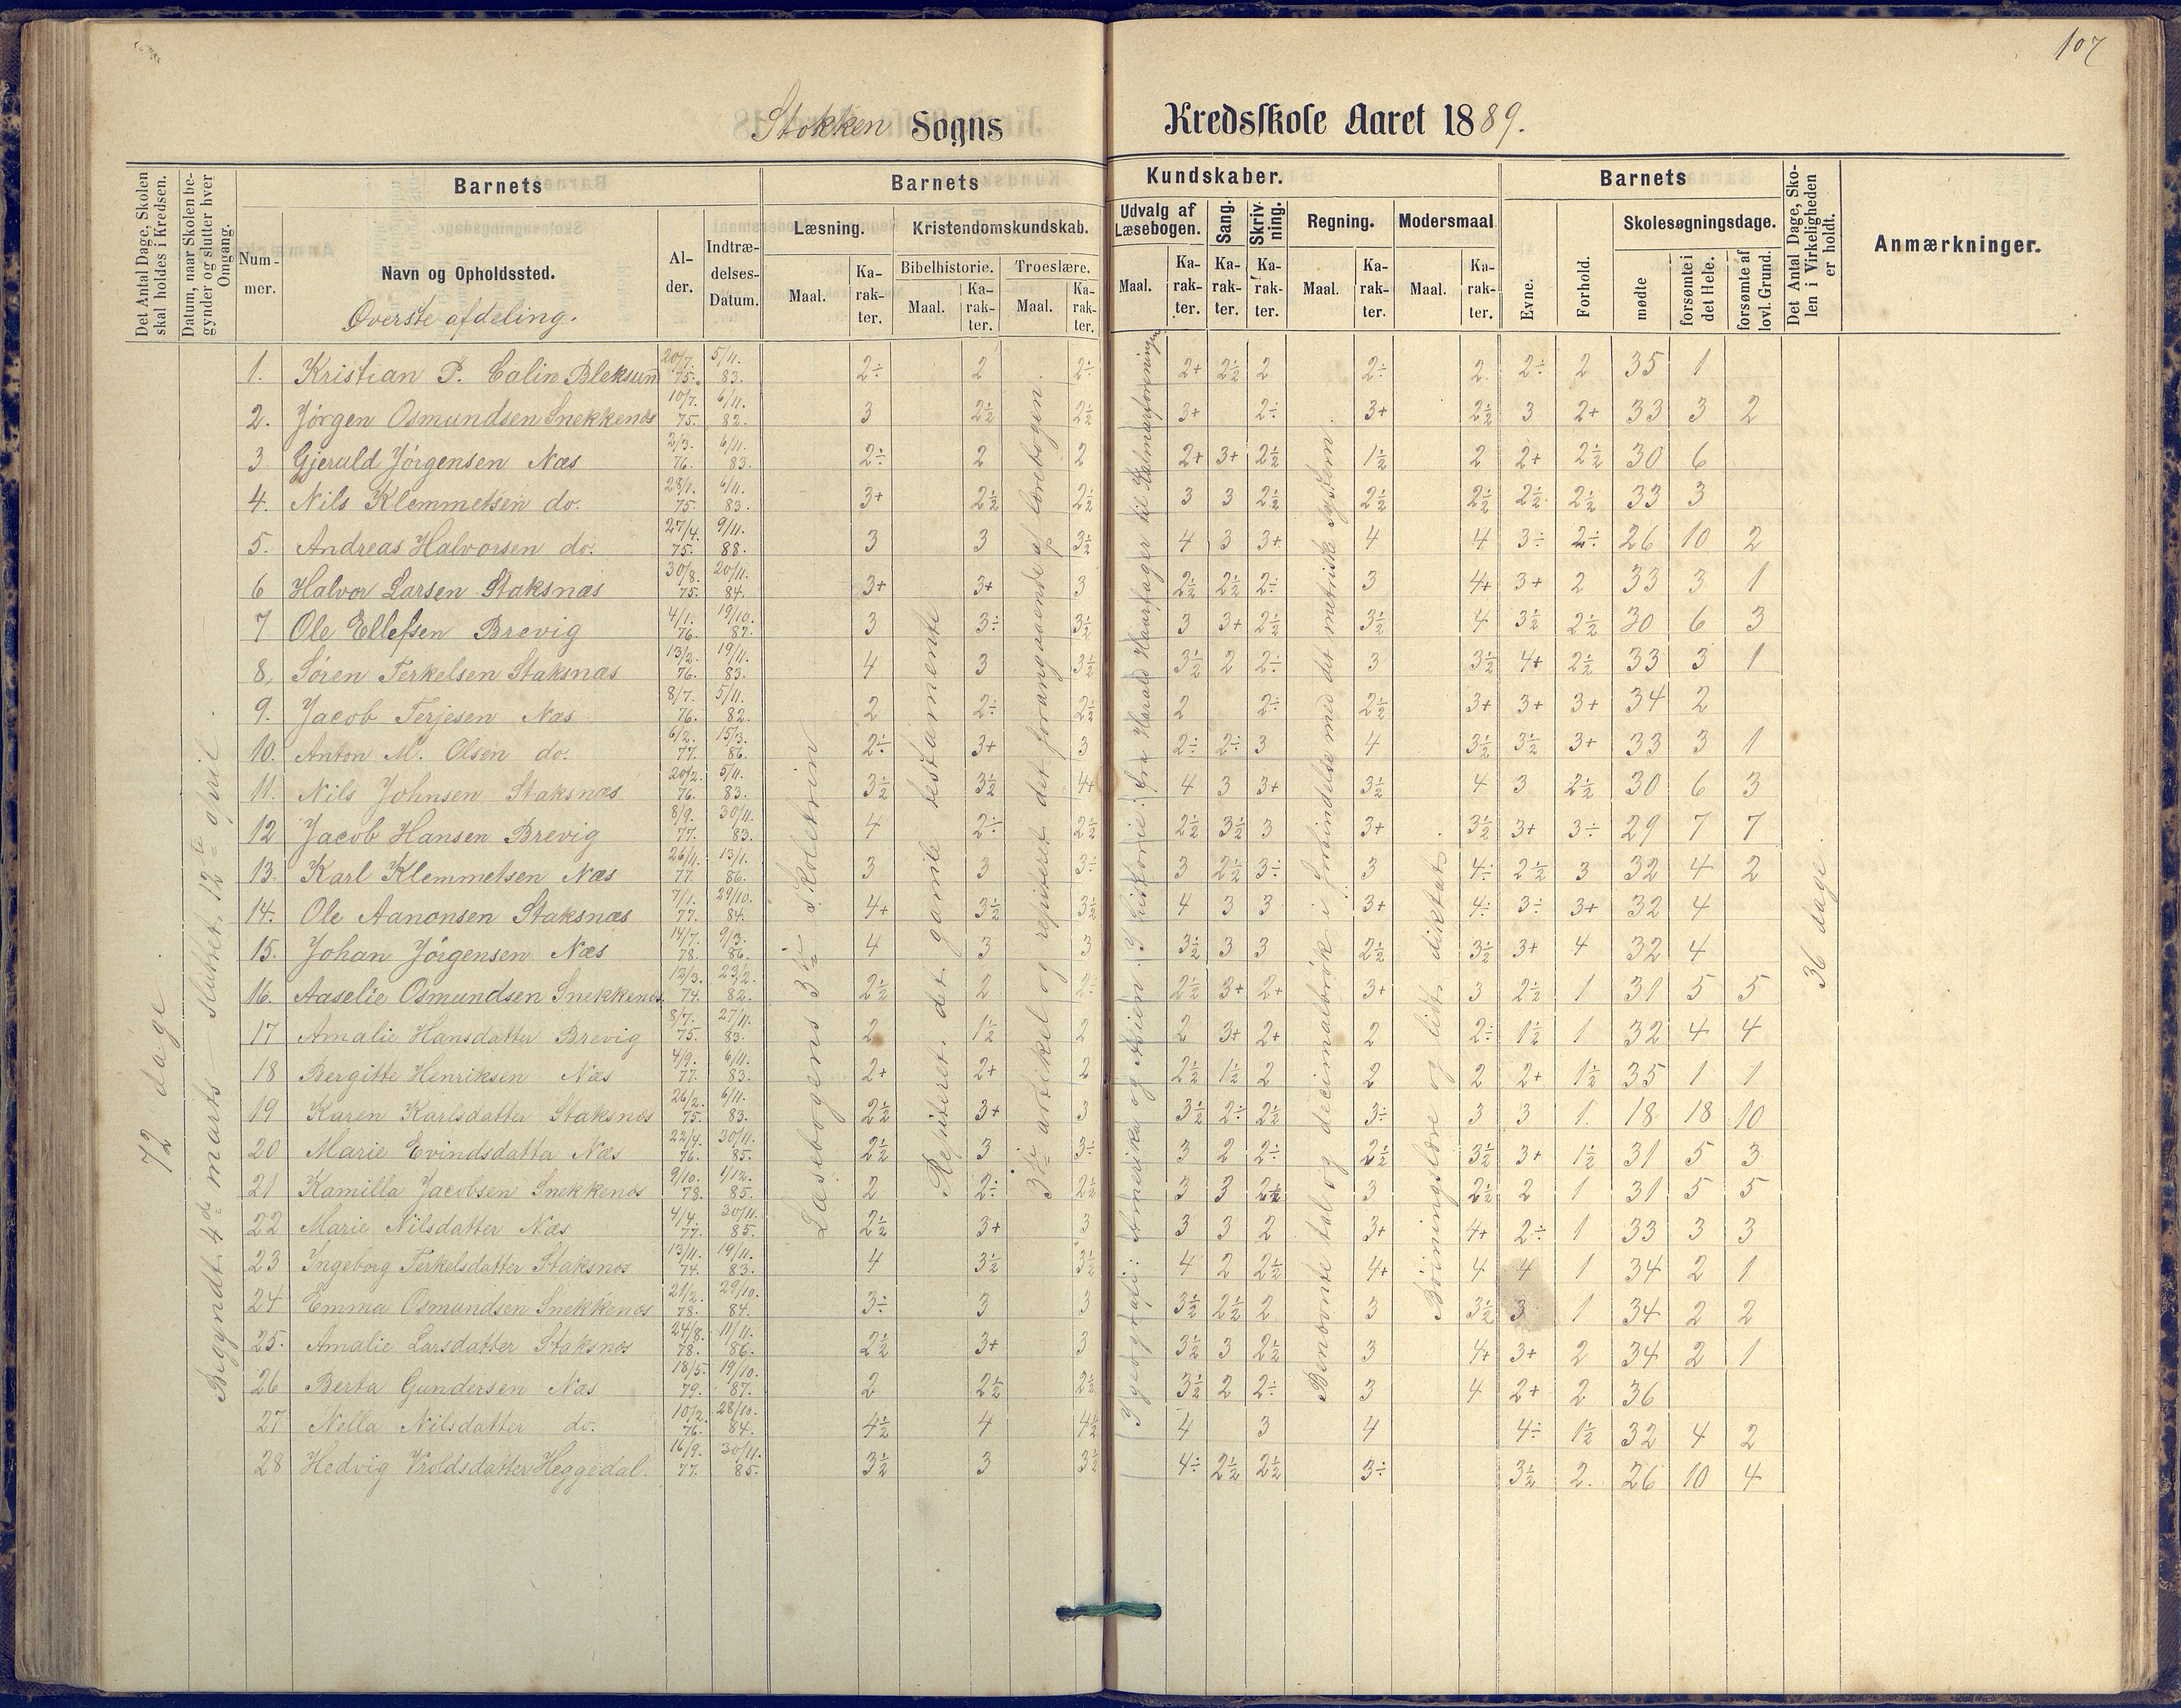 107
Stokken Sogns Kredsskole Aaret 1889.
Det Antal Dage, Skolen skal holdes i Kredsen.
Datum, naar Skolen begynder og slutter hver Omgang.
Barnets
Nummer.
Navn og Opholdssted.
Øverste afdeling.
Alder.
Indtrædelses-Datum.
Barnets Kundskaber.
Læsning.
Maal. Karakter.
Kristendomskundskab.
Bibelhistorie. Maal. Karakter.
Troeslære. Maal. Karakter.
Udvalg af Læsebogen. Maal. Karakter.
Sang. Karakter.
Skrivning. Karakter.
Regning. Maal. Karakter.
Modersmaal Maal. Karakter.
Barnets
Evne.
Forhold.
Skolesøgningsdage.
mødte
forsømte i det Hele.
forsømte af lovl. Grund.
Det Antal Dage, Skolen i Virkeligheden er holdt.
Anmærkninger.
72 dage.
Begyndt 4de marts sluttet 12te april.
Læsebogens 3die skoletrin
Repiteret det gamle testamente
3die artikel og repiteret det forangaaende af lærebogen.
I geografi: Amerika og Asien. I historie: fra Harald Haarfager til Kalmarforeningen
Benævnte tal og decimalbrøk i forbindelse med det metriske system.
Bøiningslære og lidt diktat.
36 dage.
1. Kristian P. Calin Bleksund 20/7. 75. 5/11. 83. 2÷ 2 2÷ 2+ 2½ 2 2÷ 2 2÷ 2 35 1
2. Jörgen Osmundsen Snekkenæs 10/7. 75. 6/11. 82. 3 2½ 2½ 3+ 2÷ 3+ 2½ 3 2+ 33 3 2
3 Gjeruld Jörgensen Næs 2/3. 76. 6/11. 83. 2÷ 2 2 2+ 3+ 2½ 1½ 2 2+ 2½ 30 6
4. Nils Klemmetsen do. 28/1. 75. 6/11. 83. 3+ 2½ 2½ 3 3 2½ 2½ 2½ 2½ 2½ 33 3
5. Andreas Halvorsen do. 27/4. 75. 9/11. 88. 3 3 3½ 4 3 3+ 4 4 3÷ 2÷ 26 10 2
6 Halvor Larsen Staksnæs 30/8. 75. 20/11. 84. 3+ 3+ 3 2½ 2½ 2÷ 3 4+ 3+ 2 33 3 1
7 Ole Ellefsen Brevig 4/1. 76. 19/10. 87. 3 3÷ 3½ 3 3+ 2½ 3½ 4 3½ 2½ 30 6 3
8, Sören Terkelsen Staksnæs 13/2. 76. 19/11. 83. 4 3 3½ 3½ 2 2÷ 3 3½ 4+ 2½ 33 3 1
9. Jacob Terjesen Næs 8/7. 76. 5/11. 82. 2 2÷ 2½ 2 2÷ 2½ 3+ 3+ 3+ 34 2
10. Anton M. Olsen do. 6/2. 77. 15/3. 86. 2÷ 3+ 3 2÷ 2÷ 3 4 3½ 3½ 3+ 33 3 1
11. Nils Johnsen Staksnæs 20/2. 76. 5/11. 83. 3½ 3½ 4+ 4 3 3+ 3½ 4 3 2½ 30 6 3
12 Jacob Hansen Brevig 8/9. 77. 30/11. 83. 4 2÷ 2½ 2½ 3½ 3 3+ 3½ 3+ 3÷ 29 7 7
13. Karl Klemmetsen Næs 26/11. 77. 13/1. 86. 3 3 3÷ 3 2½ 3÷ 3 4÷ 2½ 3 32 4 2
14. Ole Aanonsen Staksnæs 7/1. 77. 29/10. 84. 4+ 3½ 3½ 4 3 3 3+ 4÷ 3÷ 3+ 32 4
15. Johan Jörgensen Næs 14/7. 78. 9/3. 86. 4 3 3 3½ 3 3 2½ 3½ 3+ 4 32 4
16. Aaselie Osmundsen Snekkenæs 12/3. 74. 23/2. 82. 2½ 2 2÷ 2½ 3+ 2+ 3+ 3 2½ 1 31 5 5
17 Amalie Hansdatter Brevig 8/7. 75. 27/11. 83. 2 1½ 2 2 3+ 2+ 2 2÷ 1½ 1 32 4 4
18 Bergitte Henriksen Næs 4/9. 77. 6/11. 83. 2+ 2+ 2 2½ 1½ 2 2 2 2+ 1½ 35 1 1
19 Karen Karlsdatter Staksnæs 26/2. 75. 6/11. 83. 2½ 3+ 3 3½ 2÷ 2½ 3÷ 3 3 1. 18 18 10
20 Marie Evindsdatter Næs 22/4. 76. 30/11. 85. 2½ 3 3÷ 3 2 2÷ 2½ 3½ 3+ 1½ 31 5 3
21 Kamilla Jacobsen Snekkenæs 9/10. 78. 1/12. 85. 2 2÷ 2½ 3 3 2½ 3 2½ 2 1 31 5 5
22 Marie Nilsdatter Næs 4/4. 77. 30/11. 85. 2½ 3+ 3 3 3 2 3+ 4+ 2÷ 1 33 3 3
23 Ingeborg Terkelsdatter Staksnæs 13/11. 74. 19/11. 83. 4 3½ 3½ 4 2 2½ 4+ 4 4 1 34 2 1
24 Emma Osmundsen Snekkenæs 21/2. 78. 29/10. 84. 3÷ 3 3 3½ 2½ 2 3 3½ 3 1 34 2 2
25. Amalie Larsdatter Staksnæs 24/8. 78. 11/11. 86. 2½ 3+ 3 3½ 3 2½ 3 4+ 3+ 2 34 2 1
26 Berta Gundersen Næs 18/5. 79. 19/10. 87. 2 2½ 2½ 3½ 2 2÷ 3 4 2+ 2 36
27 Nella Nilsdatter do. 10/2. 76. 28/10. 84. 4½ 4 4½ 4 3 4 4÷ 1½ 32 4 2
28 Hedvig Troldsdatter Heggedal. 16/9. 77. 30/11. 85. 3½ 3 3½ 4÷ 2½ 2½ 3÷ 3½ 2. 26 10 4